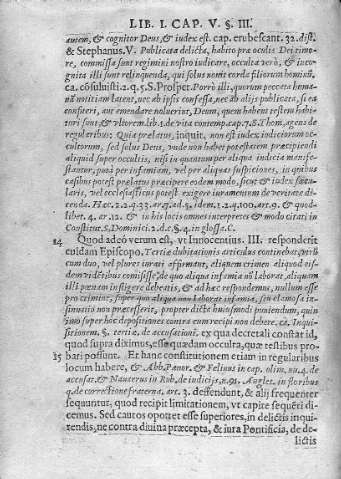 LIB. I. CAP. V. §. III.
autem, & cognitor Deus, & iudex est. cap. erubescant. 32. dist.
& Stephanus. V. Publicata delicta, habito præ oculis Dei timo-
re, commissa sunt regimini nostro iudicare, occulta verò, & inco-
gnita illi sunt relinquenda, qui solus nouit corda filiorum hominũ,
ca. cõsuluisti. 2. q. 5. S. Prosper. Porrò illi, quorum peccata huma-
nã notitiam latent, nec ab ipsis confessa, nec ab alijs publicata, si ea
confiteri, aut emendare noluerint, Deum, quem habent testem habi-
turi sunt, & vltorem. lib. 2. de vita contemp. cap. 7. S. Thom. agens de
regularibus: Quia prælatus, inquit, non est iudex indiciorum oc-
cultorum, sed solus Deus, vnde non habet potestatem præcipiendi
aliquid super occultis, nisi in quantum per aliqua indicia manife-
stantur, puta per infamiam, vel per aliquas suspiciones, in quibus
casibus potest prælatus præcipere eodem modo, sicut & iudex secu-
laris, vel ecclesiasticus potest exigere iuramentum de veritate di-
cenda. Hæc. 2. 2. q. 33. ar. 7. ad. 5. idem. 1. 2. q. 100. art. 9. & quod-
libet. 4. ar. 12. & in his locis omnes interpretes & modo citati in
Constitut. S. Dominici. 2. d. c. 8. §. 4. in glossa. C.
14 Quod adeò verum est, vt Innocentius. III. responderit
cuidam Episcopo, Tertiæ dubitationis articulus continebat, vtrũ
cum duo, vel plures iurati affirmant, aliquem crimen aliquod eis-
dem videntibus comisisse, de quo aliqua infamia nõ laborat, aliquam
illi pœnam infligere debeas, & ad hæc respondemus, nullum esse
pro crimine, super quo aliqua non laborat infamia, seu clamosa in-
sinuatio non præcesserit, propter dicta huiusmodi puniendum, quin-
imò super hoc depositiones contra eum recipi non debere. ca. Inqui-
sitionem. §. tertiæ. de accusationi. ex qua decretali constat id,
quod supra diximus, esse quædam occulta, quæ testibus pro-
15 bari possunt. Et hanc constitutionem etiam in regularibus
locum habere, & Abb. Panor. & Felinus in cap. olim, nu. 4. de
accusat. & Nauerus in Rub. de iudicijs, n. 91. Angles. in floribus
q. de correctione fraterna, art. 3. deffendunt, & alij frequenter
sequuntur, quod recipit limitationem, vt capite sequẽti di-
cemus. Sed cautos oportet esse superiores, in delictis inqui-
rendis, ne contra diuina præcepta, & iura Pontificia, de de-
lictis